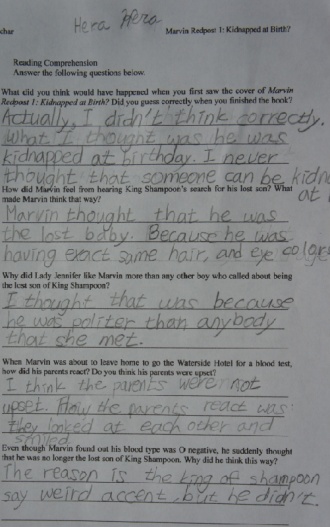 Hera Hera
char Marvin Redpost 1: Kidnapped at Birth?
Reading Comprehension
Answer the following questions below.
What did you think would have happened when you first saw the cover of Marvin
Redpost 1: Kidnapped at Birth? Did you guess correctly when you finished the book?
Actually, I didn't think correctly.
What I thought was he was
kidnapped at birthday. I never
thought that someone can be kidn
at
How did Marvin feel from hearing King Shampoon's search for his lost son? What
made Marvin think that way?
Marvin thought that he was
the lost baby. Because he was
having exact same hair, and eye colors
Why did Lady Jennifer like Marvin more than any other boy who called about being
the lost son of King Shampoon?
I thought that was because
he was politer than anybody
that she met.
When Marvin was about to leave home to go the Waterside Hotel for a blood test,
how did his parents react? Do you think his parents were upset?
I think the parents were not
upset. How the parents react was
they looked at each other and
smiled.
Even though Marvin found out his blood type was O negative, he suddenly thought
that he was no longer the lost son of King Shampoon. Why did he think this way?
The reason is the king of shampoon
say weird accent, but he didn't.